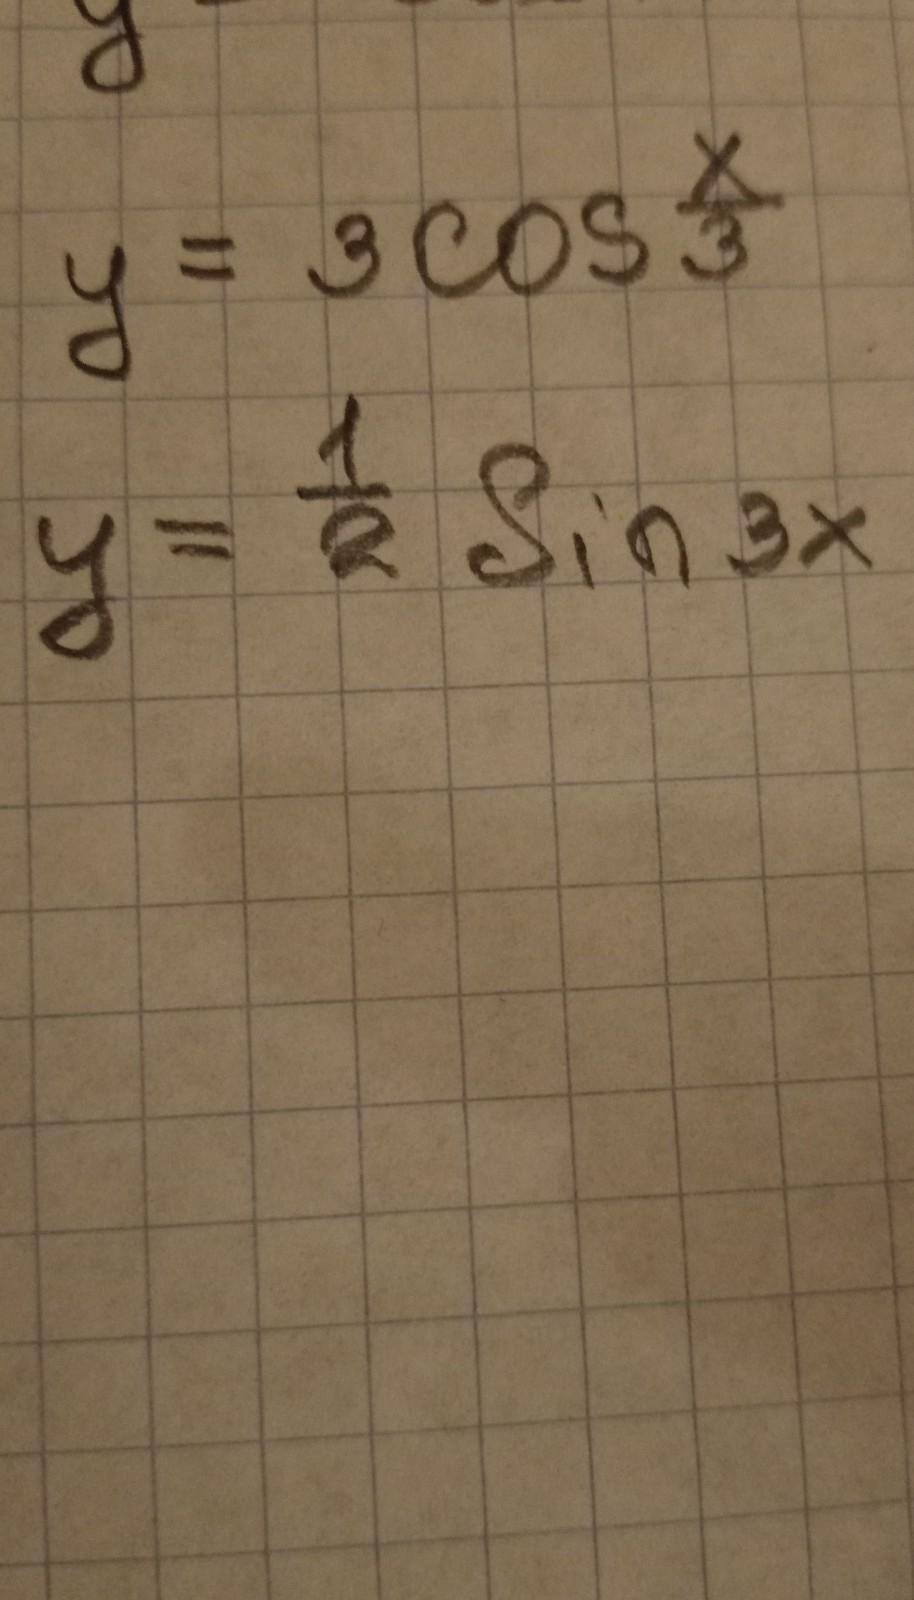 y =
y = 3 cos x/3
y = 1/2 Sin 3x